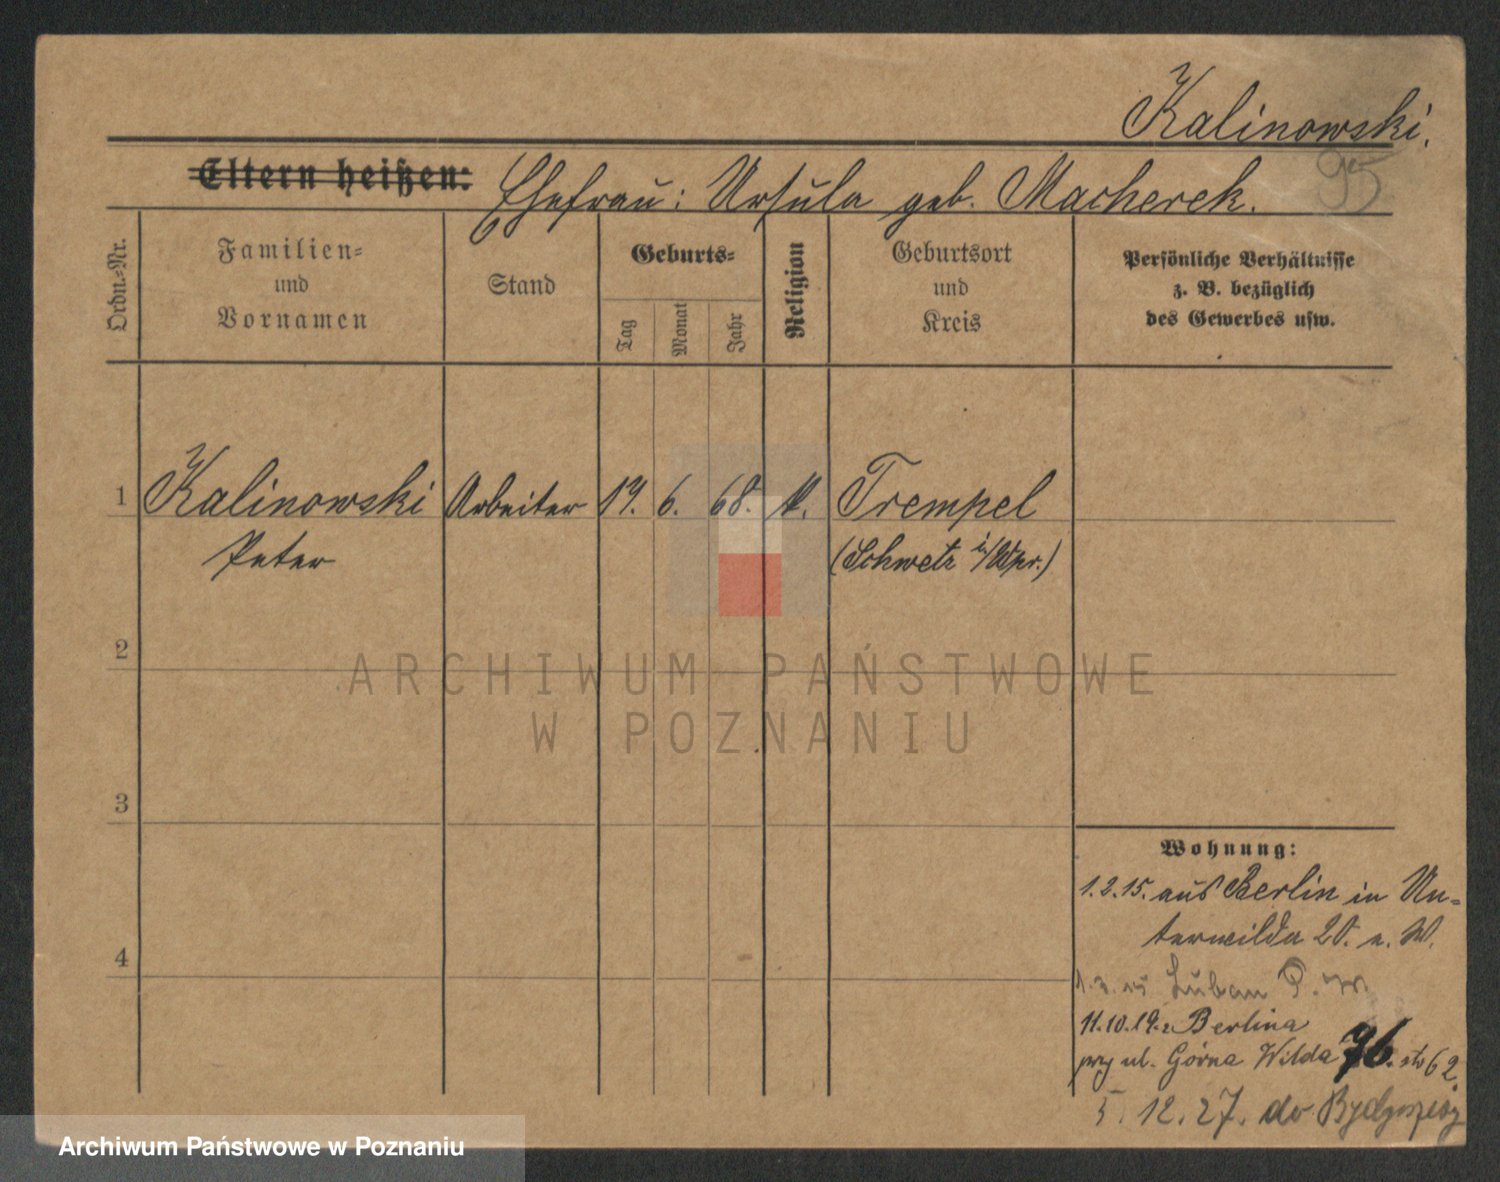 Kalinowski.
95
Eltern heißen: Ehefrau: Ursula geb. Macherek.
Ordn.-Nr.
Familien-
und
Vornamen
Stand
Geburts-
Tag
Monat
Jahr
Religion
Geburtsort
und
Kreis
Persönliche Verhältnisse
z. B. bezüglich
des Gewerbes usw.
1 Kalinowski Arbeiter 19. 6. 68. k. Trempel
Peter (Schwetz i/Wpr.)
2
3
4
Wohnung:
1.2.15. aus Berlin in Un-
terwilda 20. e. W.
Luban P. W
11.10.19. z Berlina
przy ul. Górna Wilda 76. 62.
5.12.27. do Bydgoszczy
ARCHIWUM PAŃSTWOWE
W POZNANIU
Archiwum Państwowe w Poznaniu